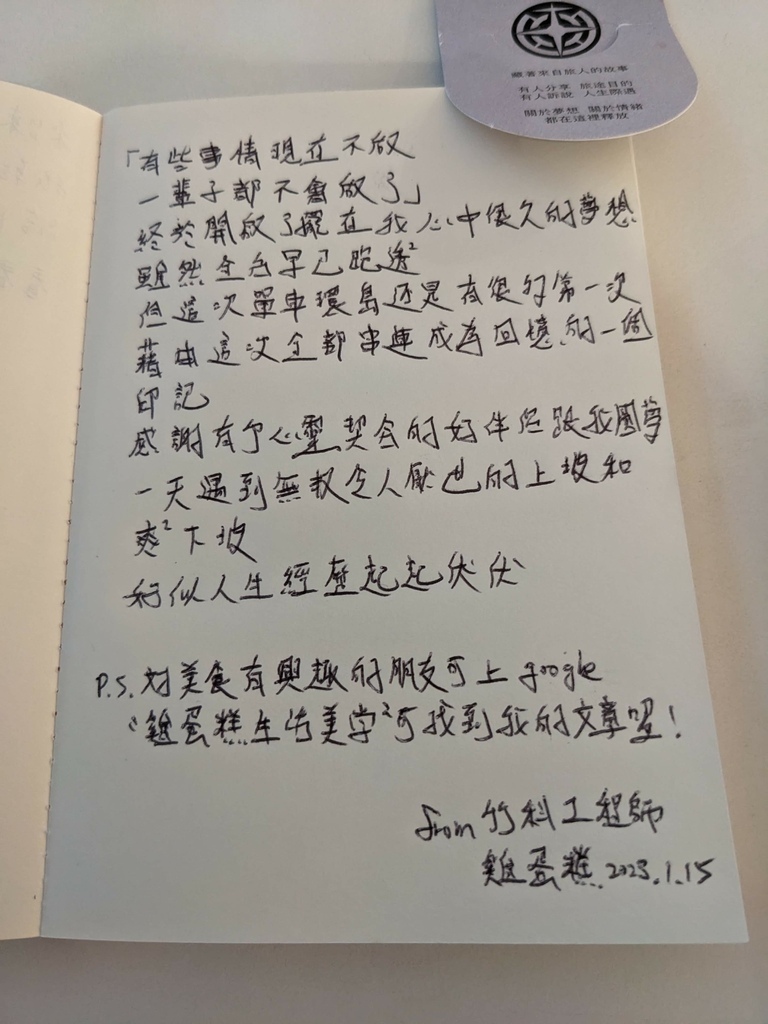 藏著來自旅人的故事
有人分享 旅途目的
有人訴說 人生際遇
關於夢想 關於情緒
都在這裡釋放
「有些事情現在不做
一輩子都不會做了」
終於開啟了擺在我心中很久的夢想
雖然全台早已跑透²
但這次單車環島还是有很多第一次
藉由這次全部串連成為回憶的一個
印記
感謝有个心靈契合的好伴侶跟我圓夢
一天遇到無數令人厭世的上坡和
爽²下坡
好似人生經歷起起伏伏
P.S. 对美食有興趣的朋友可上 google
"雞蛋糕生活美学"可找到我的文章喔!
from 竹科工程師
雞蛋糕 2023.1.15